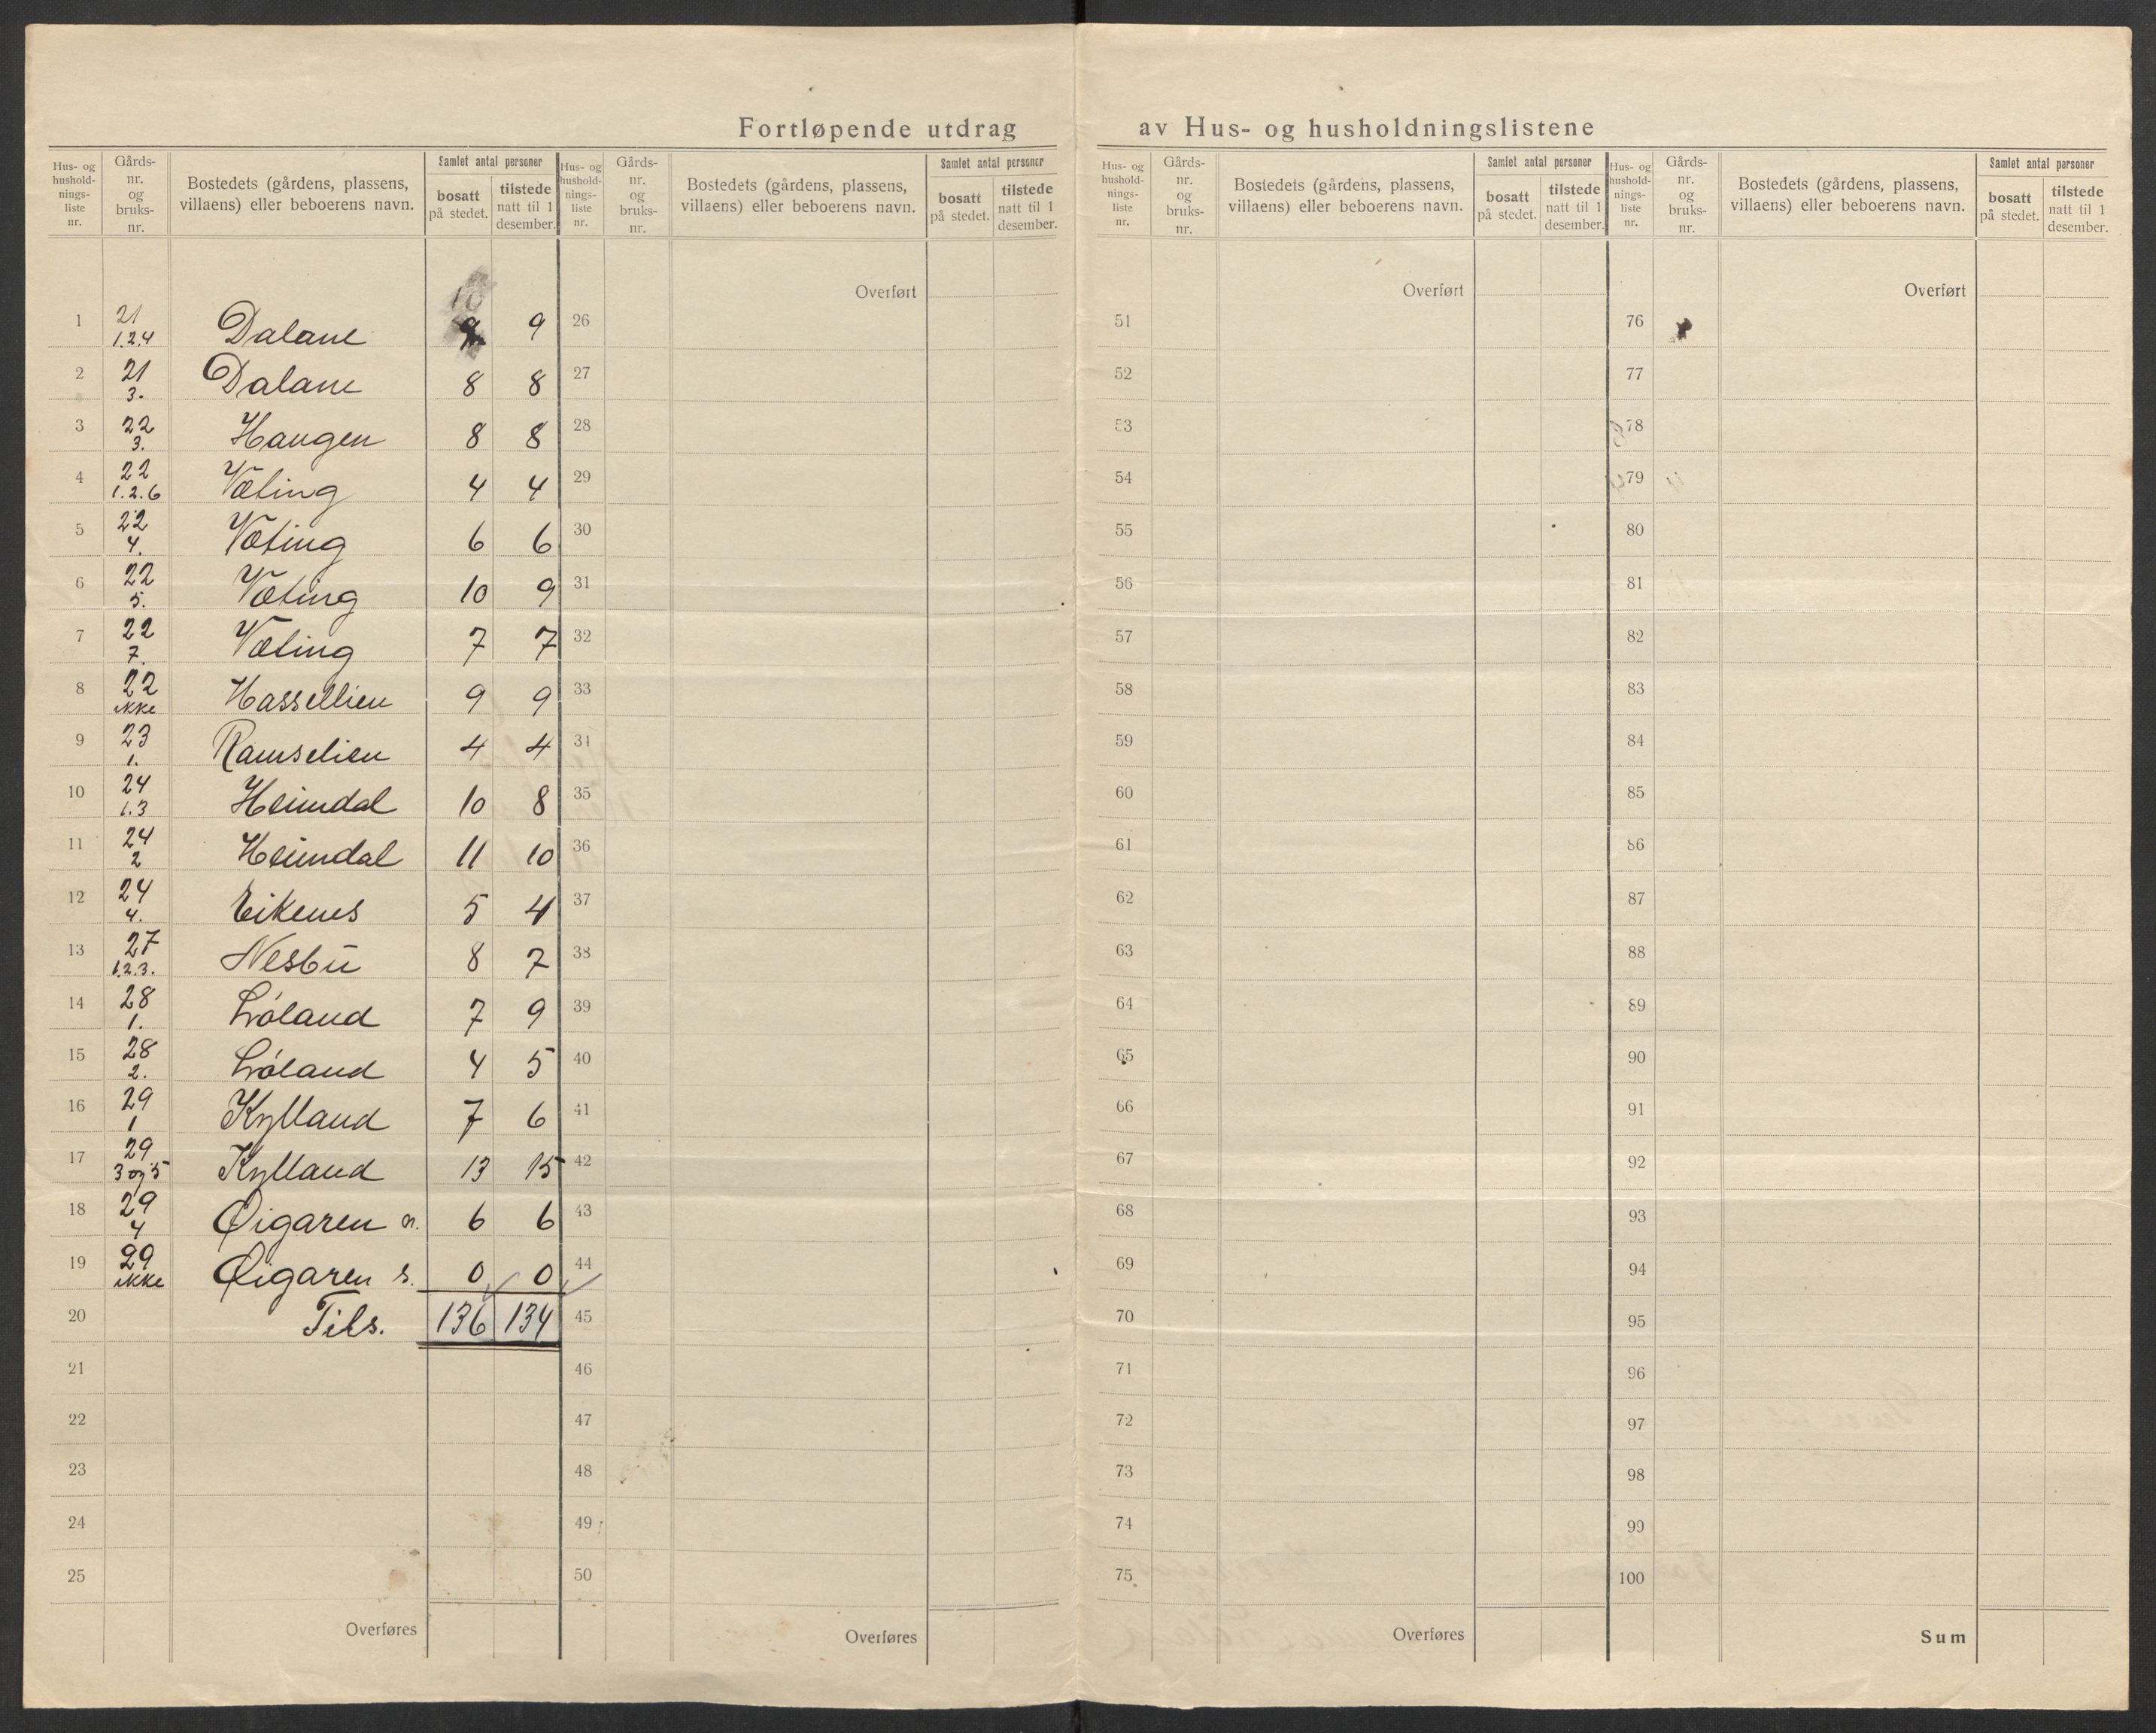 Fortløpende utdrag av Hus- og husholdningslistene
Hus- og hushold-nings-liste nr. | Gårds-nr. og bruks-nr. | Bostedets (gårdens, plassens, villaens) eller beboerens navn. | Samlet antal personer | bosatt på stedet. | tilstede natt til 1 desember.
Hus- og hushold-nings-liste nr. | Gårds-nr. og bruks-nr. | Bostedets (gårdens, plassens, villaens) eller beboerens navn. | Samlet antal personer | bosatt på stedet. | tilstede natt til 1 desember.
Hus- og hushold-nings-liste nr. | Gårds-nr. og bruks-nr. | Bostedets (gårdens, plassens, villaens) eller beboerens navn. | Samlet antal personer | bosatt på stedet. | tilstede natt til 1 desember.
Hus- og hushold-nings-liste nr. | Gårds-nr. og bruks-nr. | Bostedets (gårdens, plassens, villaens) eller beboerens navn. | Samlet antal personer | bosatt på stedet. | tilstede natt til 1 desember.
10
1 21 1.2.4 Dalane 9 9
2 21 3. Dalane 8 8
3 22 3. Haugen 8 8
4 22 1.2.6 Væting 4 4
5 22 4. Væting 6 6
6 22 5. Væting 10 9
7 22 7. Væting 7 7
8 22 ikke Hassellien 9 9
9 23 1. Ramselien 4 4
10 24 1.3 Heimdal 10 8
11 24 2 Heimdal 11 10
12 24 4. Eikenes 5 4
13 27 1.2.3. Nesbu 8 7
14 28 1. Løland 7 9
15 28 2. Løland 4 5
16 29 1 Kylland 7 6
17 29 3 og 5 Kylland 13 15
18 29 4 Øigaren n. 6 6
19 29 ikke Øigaren s. 0 0
20 Tils. 136 134
21
22
23
24
25
Overføres
Overført
26
27
28
29
30
31
32
33
34
35
36
37
38
39
40
41
42
43
44
45
46
47
48
49
50
Overføres
Overført
51
52
53
54
55
56
57
58
59
60
61
62
63
64
65
66
67
68
69
70
71
72
73
74
75
Overføres
Overført
76
77
78
79
80
81
82
83
84
85
86
87
88
89
90
91
92
93
94
95
96
97
98
99
100
Sum